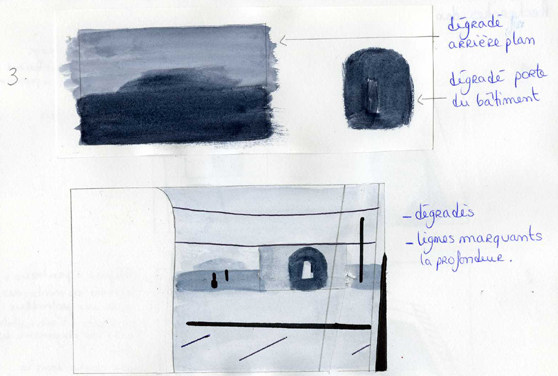 dégradé
arrière plan
3.
dégradé porte
du bâtiment
- dégradés
- lignes marquants
la profondeur.